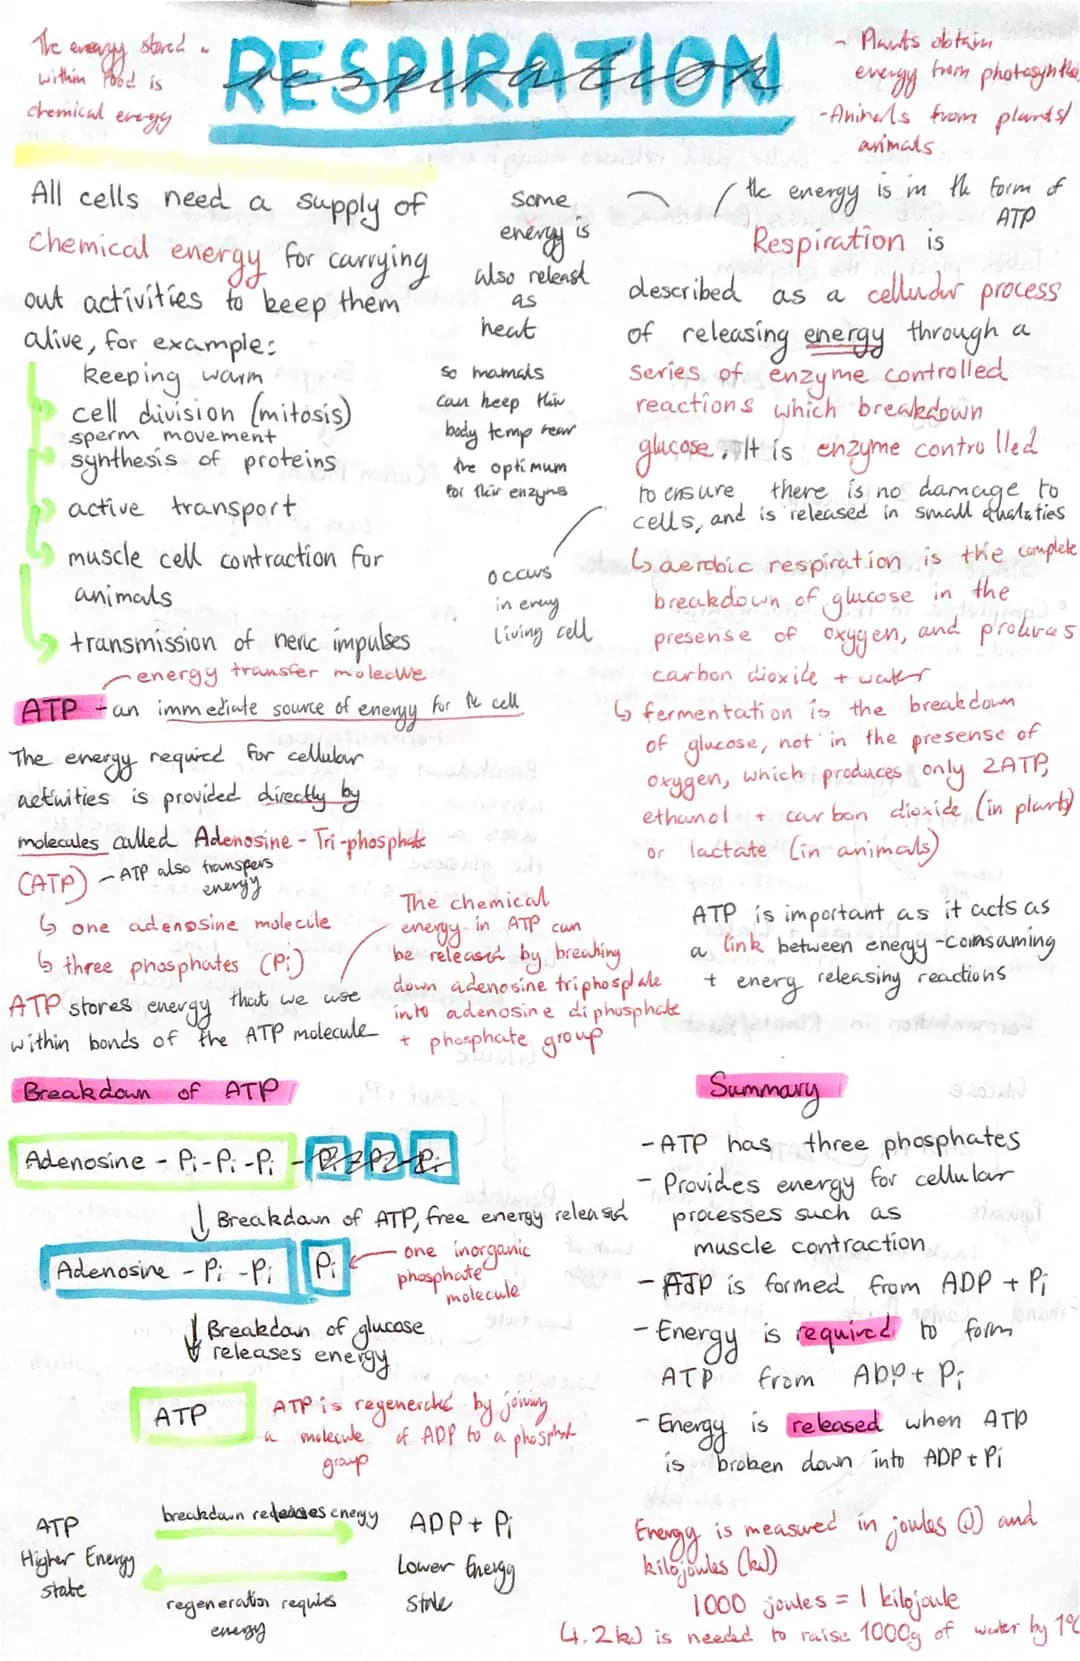 The energy stored
within food is
chemical energy
RESPIRATION
respiration
- Plants obtain
energy from photosynthe
- Animals from plants/
animals
All cells need a supply of
Chemical energy for carrying
out activities to keep them
alive, for example:
keeping warm
cell division (mitosis)
sperm movement
synthesis of proteins
active transport
muscle cell contraction for
animals
transmission of neric impulses
some
energy is
also releasd
as
heat
so mamals
can keep thir
body temp near
the optimum
for thir enzyms
occurs
in every
living cell
the energy is in the form of
ATP
Respiration is
described as a cellular process
of releasing energy through a
series of enzyme controlled
reactions which breakdown
glucose. It is enzyme controlled
to ensure there is no damage to
cells, and is released in small
↳ aerobic respiration is the complete
breakdown of glucose in the
presense of oxygen, and produces
carbon dioxide + water
↳ fermentation is the breakdown
of glucose, not in the presense of
oxygen, which produces only 2ATP,
ethanol + carbon dioxide (in plants)
or lactate (in animals)
energy transfer molecule
ATP - an immediate source of energy for the cell
The energy required for cellular
activities is provided directly by
molecules called Adenosine - Tri-phosphate
(ATP) - ATP also transfers
energy
↳ one adenosine molecule
↳ three phosphates (Pi)
ATP stores energy that we use
within bonds of the ATP molecule
The chemical
energy in ATP can
be released by breaking
down adenosine triphosphate
into adenosine diphosphate
+ phosphate group
ATP is important as it acts as
a link between energy-comsuming
+ energy releasing reactions
Breakdown of ATP
Adenosine - Pi - Pi - Pi - Pi Pi Pi
↓ Breakdown of ATP, free energy released
Adenosine - Pi - Pi Pi
one inorganic
phosphate
molecule
↓ Breakdown of glucose
releases energy
ATP
ATP is regenerated by joining
a molecule of ADP to a phosphat
group
ATP
Higher Energy
state
breakdown releases energy
regeneration requires
energy
ADP + Pi
Lower Energy
State
Summary
- ATP has three phosphates
- Provides energy for cellular
processes such as
muscle contraction
- ATP is formed from ADP + Pi
- Energy is required to form
ATP from ADP + Pi
- Energy is released when ATP
is broken down into ADP + Pi
Energy is measured in joules (J) and
kilojoules (kJ)
1000 joules = 1 kilojoule
4.2kJ is needed to raise 1000g of water by 1°C